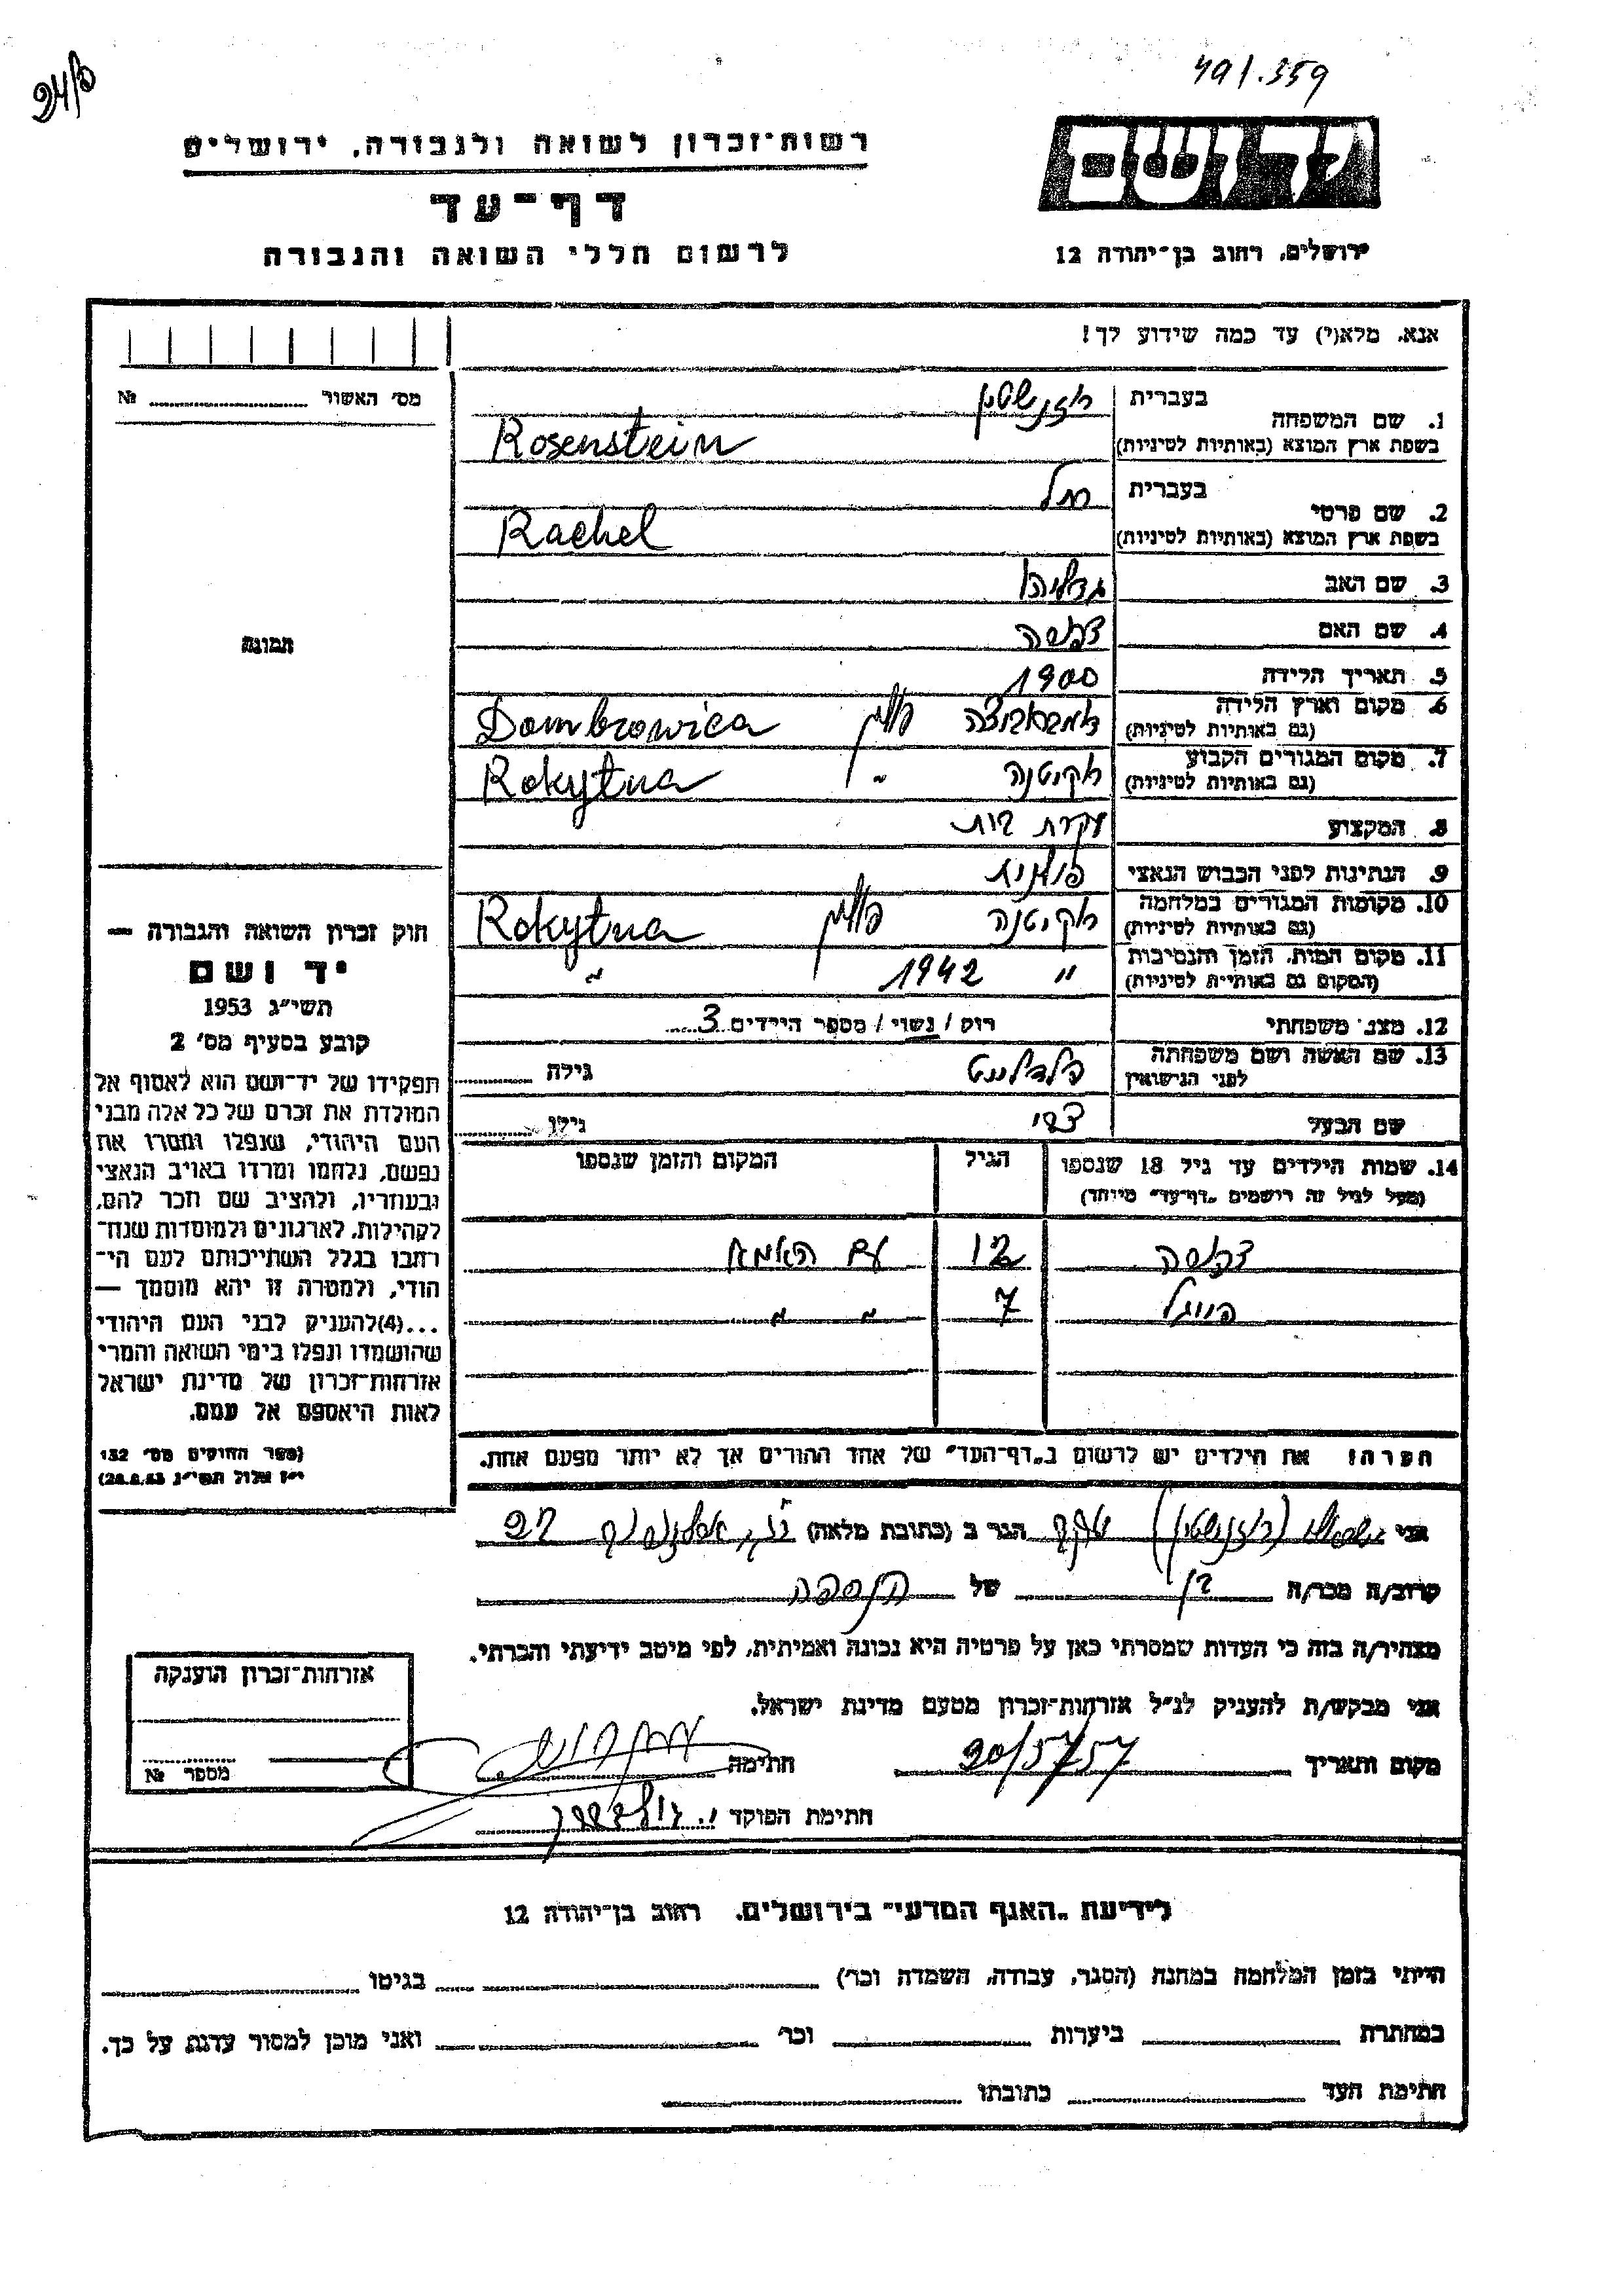 491.359
94/ס
ידושם
ירושלים, רחוב בן־יהודה 12
רשות־זכרון לשואה ולגבורה, ירושלים
דף־עד
לרשום חללי השואה והגבורה
אנא, מלא(י) עד כמה שידוע לך!
מס' האשור № 
1. שם המשפחה
בעברית רוזנשטין
בשפת ארץ המוצא (באותיות לטיניות) Rosenstein
2. שם פרטי
בעברית רחל
בשפת ארץ המוצא (באותיות לטיניות) Rachel
3. שם האב גדליהו
4. שם האם
5. תאריך הלידה 1900
6. מקום וארץ הלידה
(גם באותיות לטיניות) דומברוביצה פולין Dombrowica
7. מקום המגורים הקבוע
(גם באותיות לטיניות) רוקיטנה " Rokytna
8. המקצוע עקרת בית
9. הנתינות לפני הכבוש הנאצי פולנית
10. מקומות המגורים במלחמה
(גם באותיות לטיניות) רוקיטנה פולין Rokytna
11. מקום המות, הזמן והנסיבות
(המקום גם באותיות לטיניות) " 1942 "
12. מצב משפחתי רווק / נשוי / מספר הילדים 3
13. שם האשה ושם משפחתה
לפני הנישואין גילה
שם הבעל צבי גילו
14. שמות הילדים עד גיל 18 שנספו הגיל המקום והזמן שנספו
(מעל לגיל זה רושמים "דף־עד" מיוחד)
12 עם האמא
7 " "
הערה! את הילדים יש לרשום ב"דף־העד" של אחד ההורים אך לא יותר מפעם אחת.
תמונה
חוק זכרון השואה והגבורה —
יד ושם
תשי"ג 1953
קובע בסעיף מס' 2
תפקידו של יד־ושם הוא לאסוף אל
המולדת את זכרם של כל אלה מבני
העם היהודי, שנפלו ומסרו את
נפשם, נלחמו ומרדו באויב הנאצי
ובעוזריו, ולהציב שם וזכר להם,
לקהילות, לארגונים ולמוסדות שנח־
רבו בגלל השתייכותם לעם הי־
הודי, ולמטרה זו יהא מוסמך —
...(4) להעניק לבני העם היהודי
שהושמדו ונפלו בימי השואה והמרי
אזרחות־זכרון של מדינת ישראל
לאות היאספם אל עמם.
(ספר החוקים מס' 132
י"ז אלול תשי"ג 28.8.53)
אני (רוזנשטין) הגר ב (כתובת מלאה) 22
קרוב/ה מכר/ה בן של הנספה
מצהיר/ה בזה כי העדות שמסרתי כאן על פרטיה היא נכונה ואמיתית, לפי מיטב ידיעתי והכרתי.
אני מבקש/ת להעניק לנ"ל אזרחות־זכרון מטעם מדינת ישראל.
מקום ותאריך 20/5/57 חתימה
חתימת הפוקד
אזרחות־זכרון הוענקה
מספר №
לידיעת "האגף המדעי" בירושלים, רחוב בן־יהודה 12
הייתי בזמן המלחמה במחנה (הסגר, עבודה, השמדה וכו') בגיטו
במחתרת ביערות וכו' ואני מוכן למסור עדות על כך.
חתימת העד כתובתו